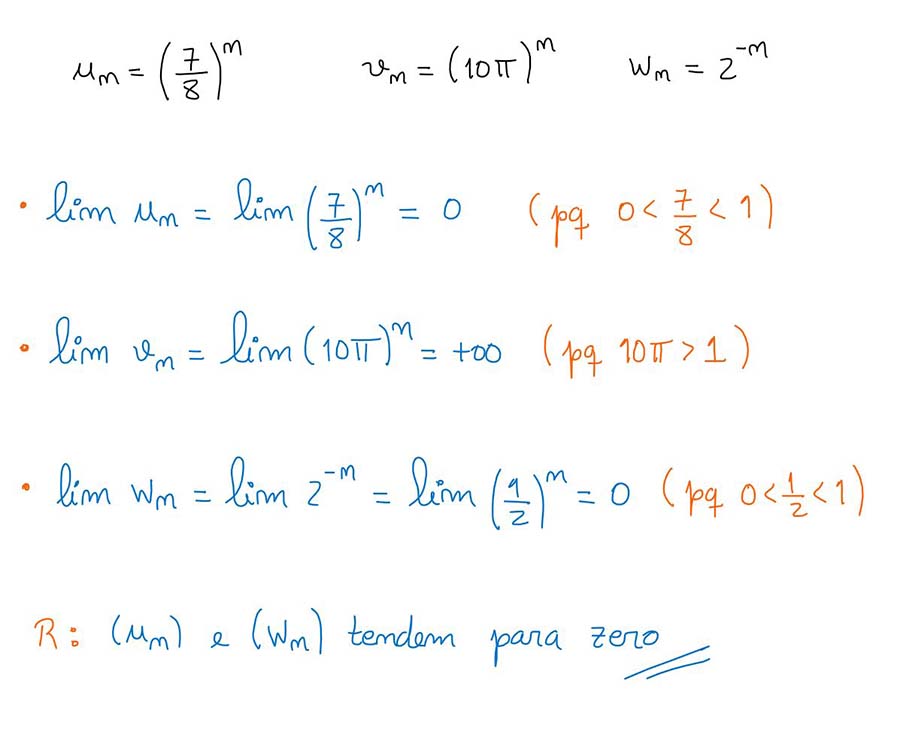 uₙ = (7/8)ⁿ vₙ = (10π)ⁿ wₙ = 2⁻ⁿ
• lim uₙ = lim (7/8)ⁿ = 0 (pq 0 < 7/8 < 1)
• lim vₙ = lim (10π)ⁿ = +∞ (pq 10π > 1)
• lim wₙ = lim 2⁻ⁿ = lim (1/2)ⁿ = 0 (pq 0 < 1/2 < 1)
R: (uₙ) e (wₙ) tendem para zero